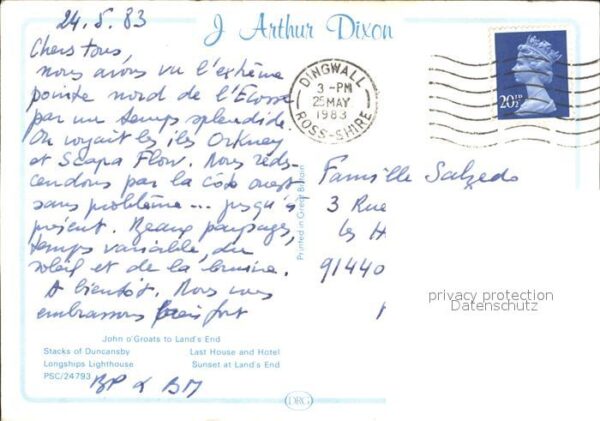 24.5.83
J Arthur Dixon
DINGWALL
3-PM
25 MAY
1983
ROSS-SHIRE
20½P
Chers tous,
nous avons vu l'extrême
pointe nord de l'Ecosse
par un temps splendide.
On voyait les îles Orkney
et Scapa Flow. Nous redes-
cendons par la côte ouest
sans problème... jusqu'à
présent. Beaux paysages,
temps variable, du
soleil et de la bruine.
A bientôt. Nous vous
embrassons fort
BP & BM
Printed in Great Britain
Famille Salzedo
3 Rue
les H
91440
privacy protection
Datenschutz
John o'Groats to Land's End
Stacks of Duncansby Last House and Hotel
Longships Lighthouse Sunset at Land's End
PSC/24793
DRG